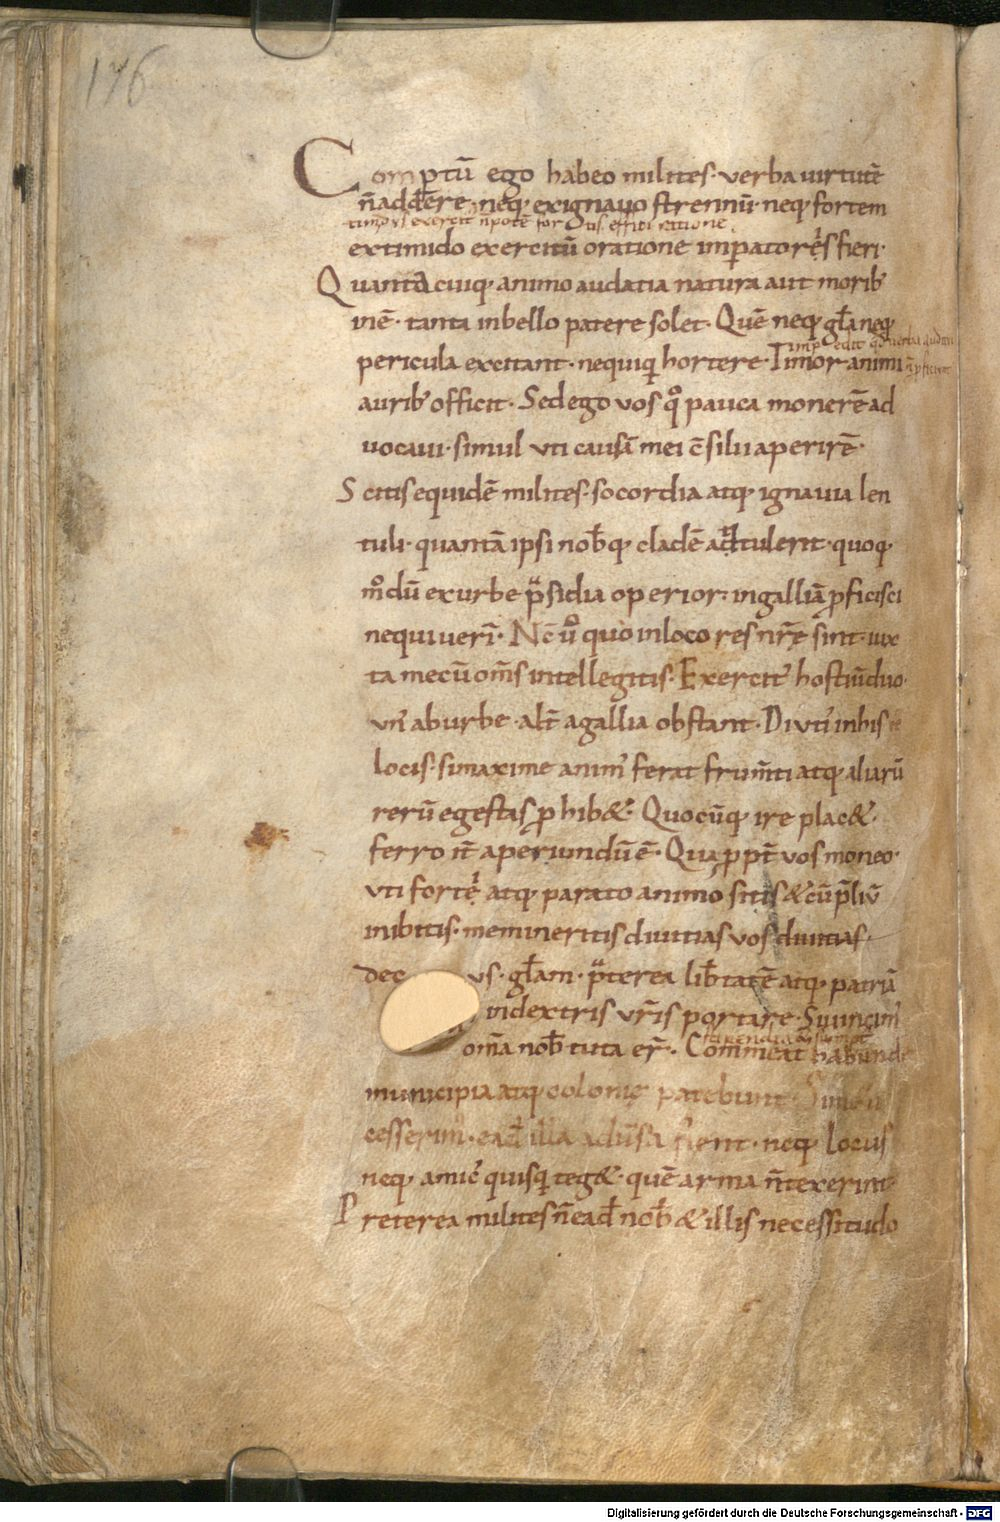 176
Comptū ego habeo milites· verba uirtutē
n̄ addere· neq; ex ignauo strennuū· neq; fortem
ex timido exercitū oratione imꝑatoris fieri·
Quanta cuiq; animo audatia natura aut morib;
inē· tanta in bello patere solet· Quē neq; gl̄a neq;
pericula excitant· nequiq̄ hortere· Timor animi
aurib; officit· Sed ego vos qͦ pauca monerē ad
uocaui· simul uti causā mei c̄silii aperirē·
Scitis equidē milites· socordia atq; ignauia len
tuli· quantā ipsi nob̄q; cladē attulerit· quoq;
mͦdū ex urbe p̄sidia operior· in galliā ꝓficisci
nequiuerī· Nc̄ ūͦ quo in loco res nr̄ę sint· iux
ta mecū om̄s intellegitis· Exercit; hostiū duo·
un; ab urbe· alt̄ a gallia obstant· Diuti; in his
locis· si maxime anim; ferat frum̄ti atq; aliarū
rerū egestas ꝓhib&· Quocūq; ire plac&·
ferro it̄ aperiundū ē· Quaꝓpt̄ vos moneo·
uti fortes atq; parato animo sitis & cū p̄liū
inibitis· memineritis diuitias vos diuitias·
dec us· gl̄am· p̄terea lib̄tatē atq; patriā
in dextris vr̄is portare· Si uincim;
om̄a nob̄ tuta er̄· Commeat; habunde
municipia atq; colonię patebunt·
cesserim;· ead̄ illa aduersa fient· neq; locus
neq; amic; quisq̄ teg&· quē arma n̄ texerint
Preterea milites n̄ ead̄ nob̄ & illis necessitudo
Digitalisierung gefördert durch die Deutsche Forschungsgemeinschaft - DFG